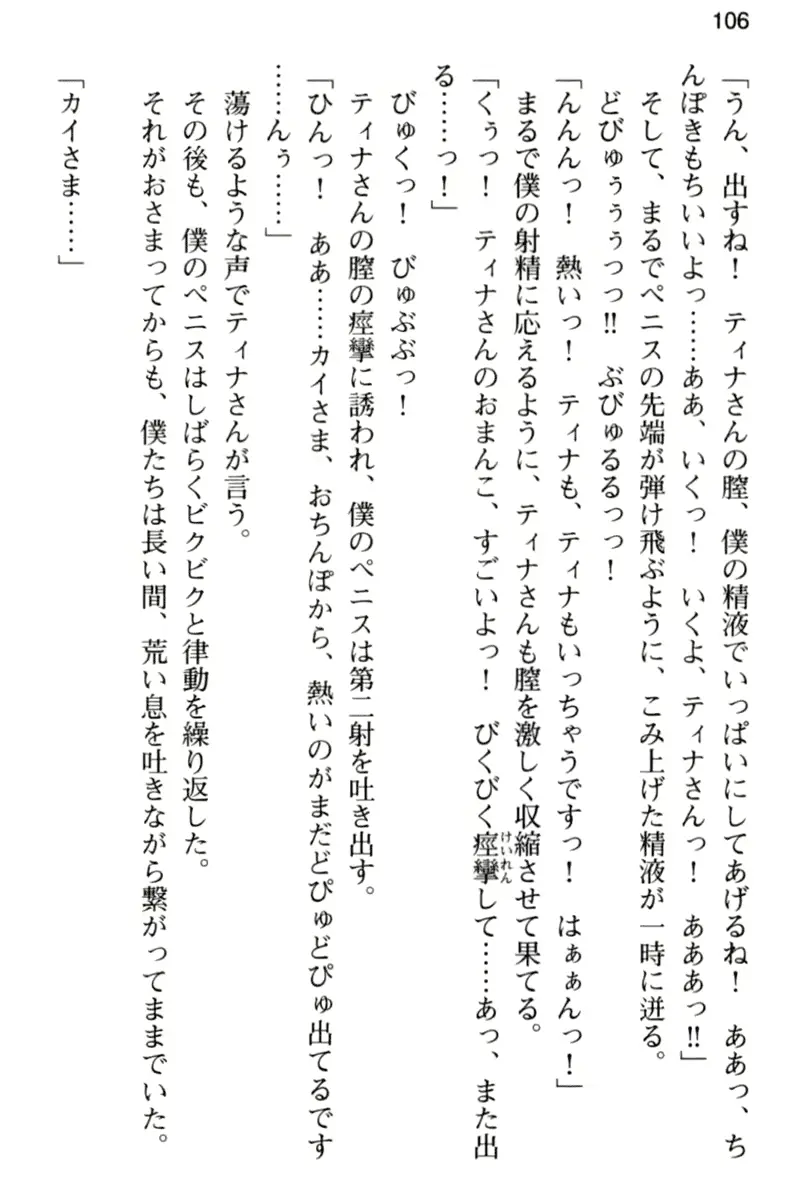 106
「うん、出すね！　ティナさんの膣、僕の精液でいっぱいにしてあげるね！　ああっ、ち
んぽきもちいいよっ……ああ、いくっ！　いくよ、ティナさんっ！　あああっ!!」
そして、まるでペニスの先端が弾け飛ぶように、こみ上げた精液が一時に迸る。
どびゅぅぅぅっっ!!　ぶびゅるるっっ！
「んんんっ！　熱いっ！　ティナも、ティナもいっちゃうですっ！　はぁぁんっ！」
まるで僕の射精に応えるように、ティナさんも膣を激しく収縮させて果てる。
「くぅっ！　ティナさんのおまんこ、すごいよっ！　びくびく痙攣けいれんして……あっ、また出
る……っ！」
びゅくっ！　びゅぶぶっ！
ティナさんの膣の痙攣に誘われ、僕のペニスは第二射を吐き出す。
「ひんっ！　ああ……カイさま、おちんぽから、熱いのがまだどぴゅどぴゅ出てるです
……んぅ……」
蕩けるような声でティナさんが言う。
その後も、僕のペニスはしばらくビクビクと律動を繰り返した。
それがおさまってからも、僕たちは長い間、荒い息を吐きながら繋がってままでいた。
「カイさま……」